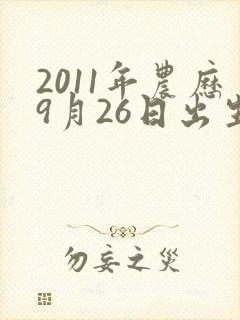 2011年農歷
9月26日出生
勿妄之災